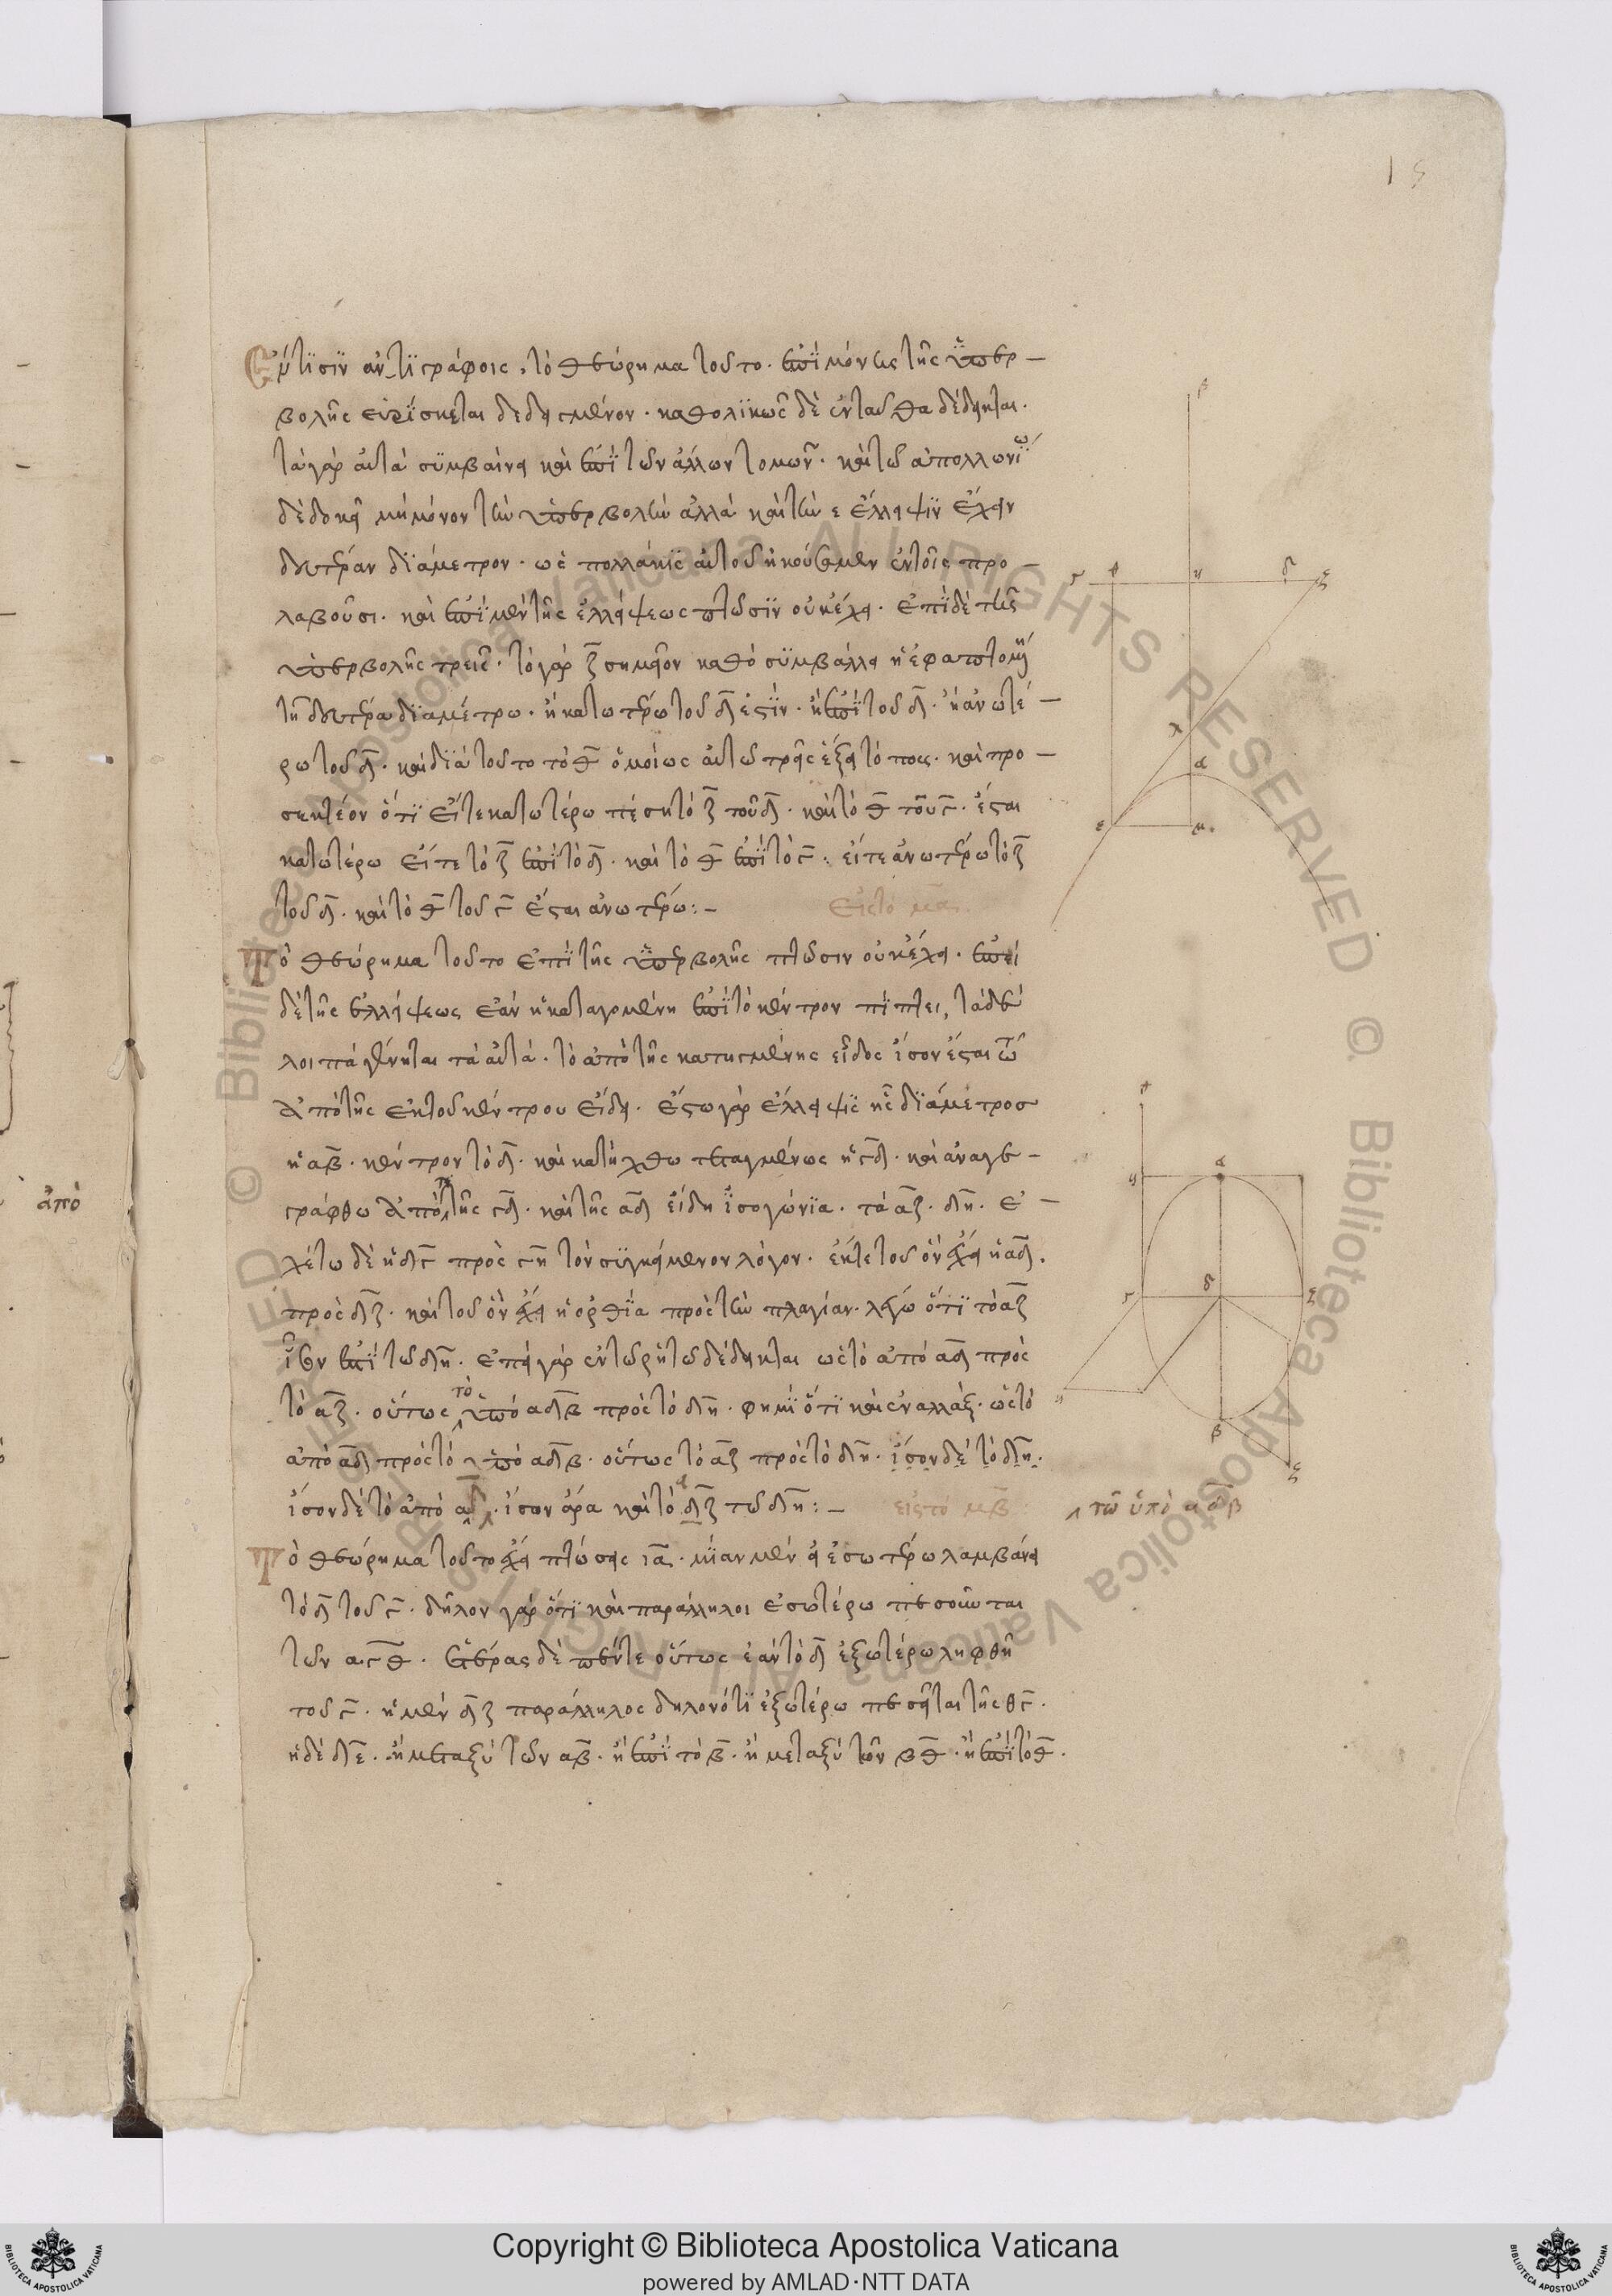 Ἔν τισιν ἀντιγράφοις τὸ θεώρημα τοῦτο· ἐπὶ μόνης τῆς ὑπερ–
βολῆς εὑρίσκεται δεδειγμένον· καθολικῶς δὲ ἐνταῦθα δέδεικται·
τὰ γὰρ αὐτὰ συμβαίνει καὶ ἐπὶ τῶν ἄλλων τομῶν· καὶ τῶ ἀπολλωνίω
δὲ δοκεῖ μὴ μόνον τὴν ὑπερβολὴν ἀλλὰ καὶ τὴν ἔλλειψιν ἔχειν
δευτέραν διάμετρον· ὡς πολλάκις αὐτοῦ ἠκούσαμεν ἐν τοῖς προ–
λαβοῦσι· καὶ ἐπὶ μὲν τῆς ἐλλείψεως πτῶσιν οὐκ ἔχει· ἐπὶ δὲ τῆς
ὑπερβολῆς τρεῖς· τὸ γὰρ ζ σημεῖον καθὸ συμβάλλει ἡ ἐφαπτομένη
τῇ δευτέρα διαμέτρω· ἢ κατωτέρω τοῦ δ ἐστὶν· ἢ ἐπὶ τοῦ δ· ἢ ἀνωτέ–
ρω τοῦ δ· καὶ διὰ τοῦτο τὸ θ ὁμοίως αὐτῶ τρεῖς ἕξει τόπους· καὶ προ–
σεκτέον ὅτι εἴτε κατωτέρω πέση τὸ ζ τοῦ δ· καὶ τὸ θ τοῦ γ· ἔσται
κατωτέρω εἴτε τὸ ζ ἐπὶ τὸ δ· καὶ τὸ θ ἐπὶ τὸ γ· εἴτε ἀνωτέρω τὸ ζ
τοῦ δ· καὶ τὸ θ τοῦ γ ἔσται ἀνωτέρω:– Εἰς τὸ μα
Τὸ θεώρημα τοῦτο ἐπὶ τῆς ὑπερβολῆς πτῶσιν οὐκ ἔχει· ἐπὶ
δὲ τῆς ἐλλείψεως ἐὰν ἡ καταγομένη ἐπὶ τὸ κέντρον πίπτει, τὰ δὲ
λοιπὰ γένηται τὰ αὐτά· τὸ ἀπὸ τῆς κατηγμένης εἶδος ἴσον ἔσται τῶ
ἀπὸ τῆς ἐκ τοῦ κέντρου εἴδει· ἔστω γὰρ ἔλλειψις ἧς διάμετρος
ἡ αβ· κέντρον τὸ δ· καὶ κατήχθω τεταγμένως ἡ γδ· καὶ ἀναγε–
γράφθω ἀπό τε τῆς γδ· καὶ τῆς αδ εἴδη ἰσογώνια· τὰ αζ· δη· ἐ–
χέτω δὲ ἡ δγ πρὸς γη τὸν συγκείμενον λόγον· ἔκ τε τοῦ ὃν ἔχει ἡ αδ·
πρὸς δζ· καὶ τοῦ ὃν ἔχει ἡ ὀρθία πρὸς τὴν πλαγίαν· λέγω ὅτι τὸ αζ
ἴσον ἐστὶ τῶ δη· ἐπεὶ γὰρ ἐν τῶ ῥητῶ δέδεικται ὡς τὸ ἀπὸ αδ πρὸς
τὸ αζ· οὕτως τὸ ὑπὸ αδβ πρὸς τὸ δη· φημὶ ὅτι καὶ ἐναλλάξ· ὡς τὸ
ἀπὸ αδ πρὸς τὸ ὑπὸ αδβ· οὕτως τὸ αζ πρὸς τὸ δη· ἴσον δὲ τὸ δη·
ἴσον δὲ τὸ ἀπὸ αδ· ἴσον ἄρα καὶ τὸ δζ τῶ δη:– εἰς τὸ μβ:
τῶ ὑπὸ αδβ
Τὸ θεώρημα τοῦτο ἔχει πτώσεις ια· μίαν μὲν εἰ ἐσωτέρω λαμβάνει
τὸ δ τοῦ γ· δῆλον γὰρ ὅτι καὶ παράλληλοι ἐσωτέρω πεσοῦνται
τῶν αγθ· ἑτέρας δὲ πέντε οὕτως ἐὰν τὸ δ ἐξωτέρω ληφθῆ
τοῦ γ· ἡ μὲν δζ παράλληλος δηλονότι ἐξωτέρω πεσεῖται τῆς θγ·
ἡ δὲ δε· ἢ μεταξὺ τῶν αβ· ἢ ἐπὶ τὸ β· ἢ μεταξὺ τῶν βθ· ἢ ἐπὶ τὸ θ·
ἀπὸ
Copyright © Biblioteca Apostolica Vaticana
powered by AMLAD·NTT DATA